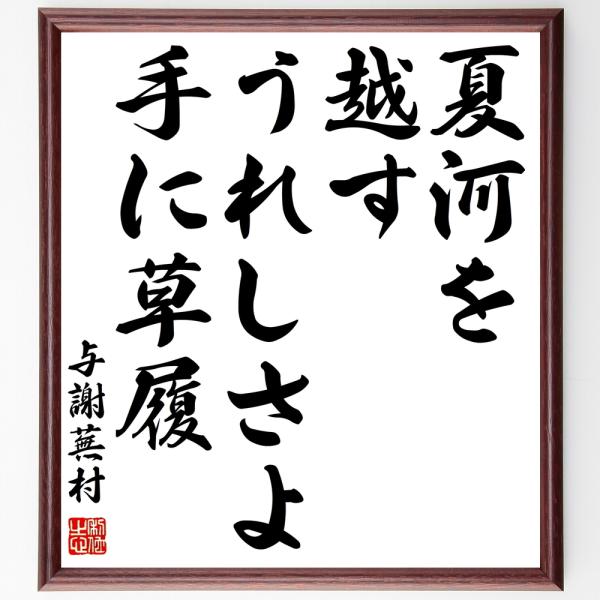 夏河を
越す
うれしさよ
手に草履
与謝蕪村